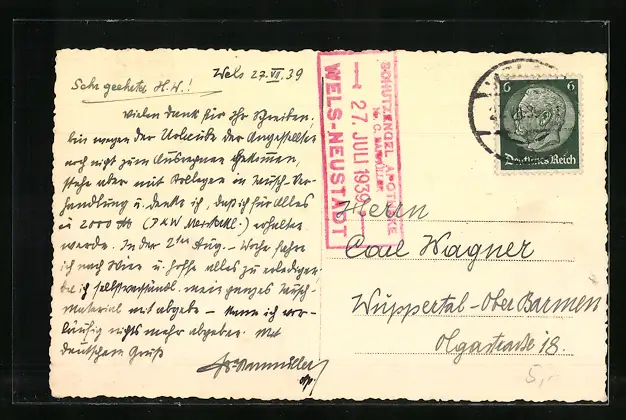 Wels 27.VII.39
Sehr geehrter H.W.!
vielen Dank für Ihr Schreiben,
bin wegen der Urlaube der Angestellten
noch nicht zum
stehe aber mit Kollegen in Tausch-Ver-
handlung u. denke ich, daß ich für Alles
2000 M erhalten
werde. In der 2ten Aug.-Woche fahre
ich nach Wien u. hoffe alles zu erledigen
ich selbstverständl. mein ganzes Tausch-
material mit abgebe - kann ich vor-
läufig nichts mehr abgeben. Mit
deutschem Gruß
SCHUTZENGEL-APOTHEKE
27. JULI 1939
WELS-NEUSTADT
6 6
Deutsches Reich
Herrn
Carl Wagner
Wuppertal-Ober Barmen
Olgastraße 18.
5,-